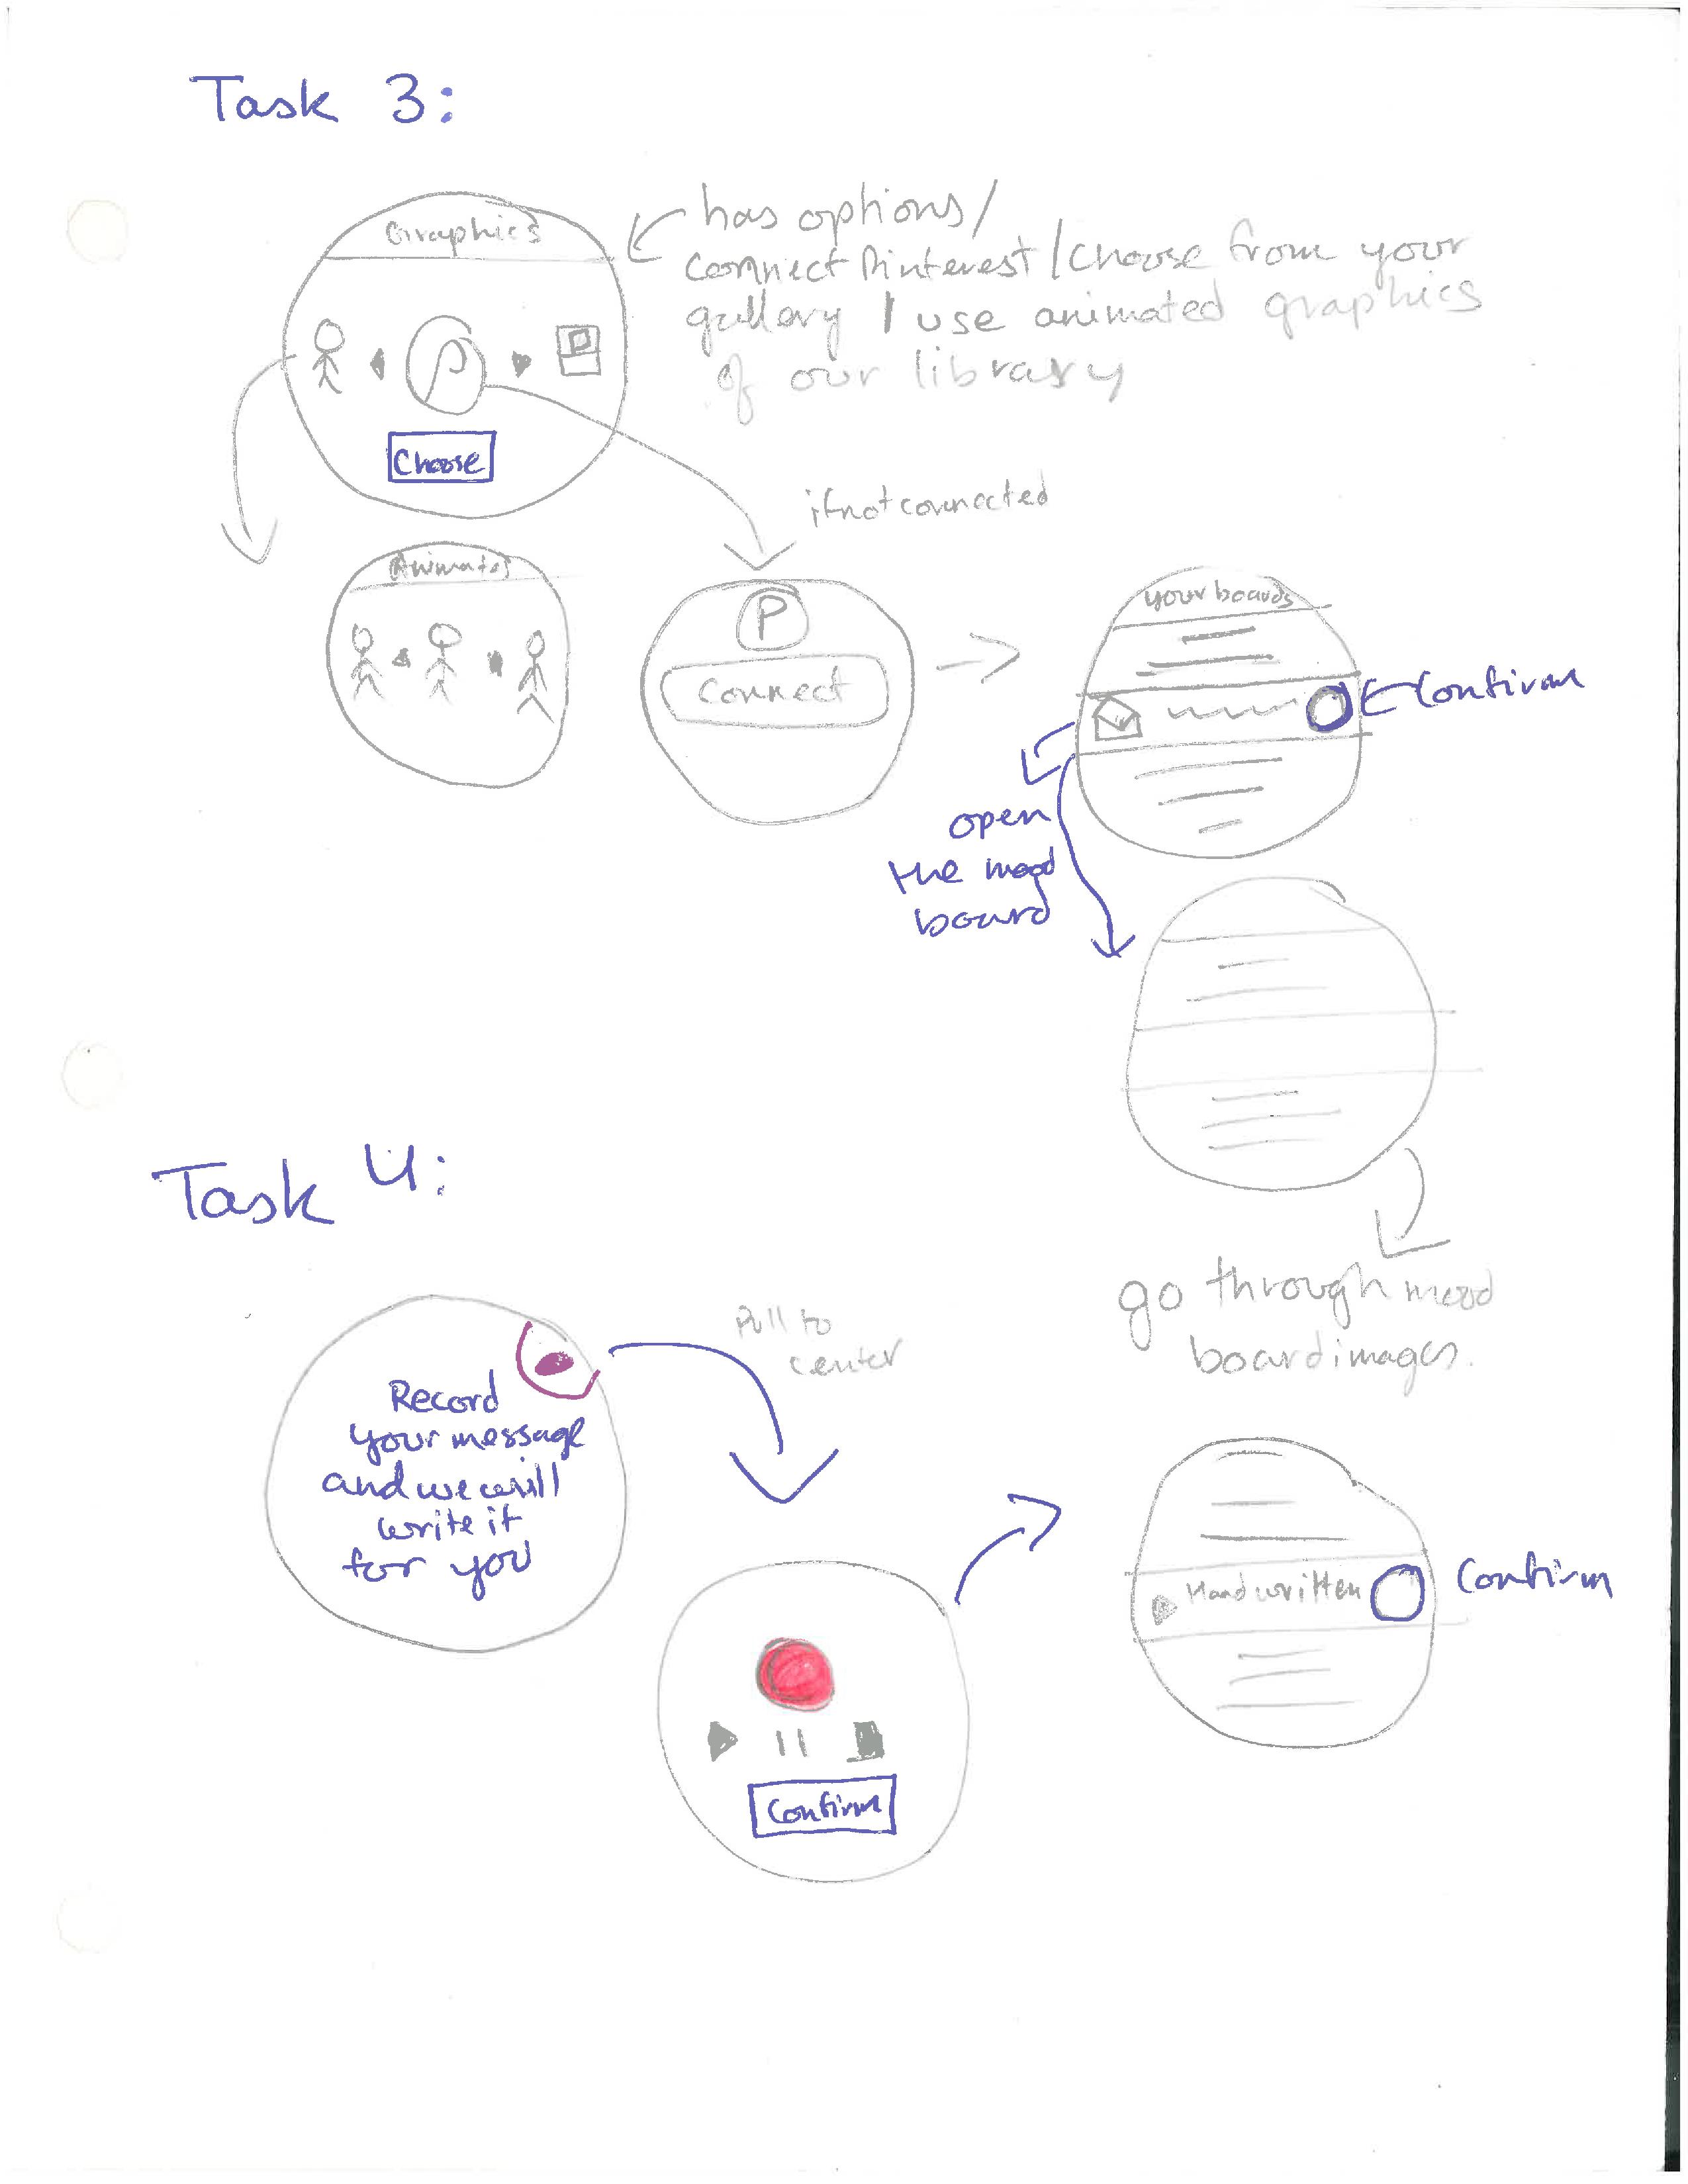 Task 3:
Graphics
has options/
connect Pinterest / choose from your
gallery / use animated graphics
of our library
P
Choose
if not connected
Animated
P
Connect
your boards
Confirm
open
the mood
board
go through mood
board images.
Task 4:
Pull to
center
Record
your message
and we will
write it
for you
Confirm
Handwritten
Confirm